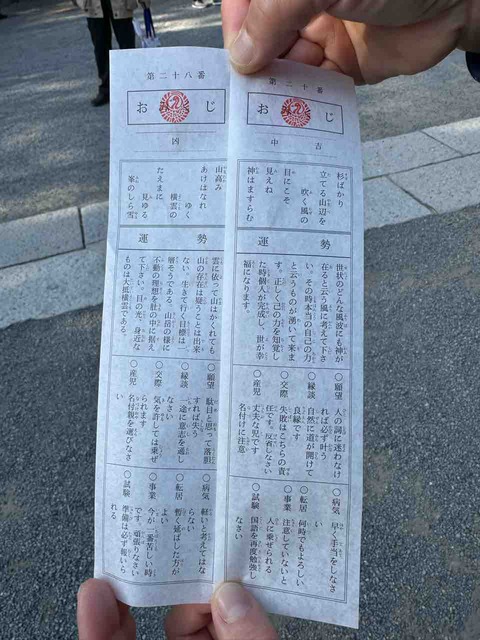 第二十番
おみくじ
中吉
杉ばかり
立てる山辺を
吹く風の
目にこそ
見えね
神はますらむ
運勢
世状のどんな風波にも神が
在ると云う風に考えて下さ
い。その時本当の自己の力
と云うものが湧いて来ま
す。正しく己の力を知覚し
た時個人が完成し、世が幸
福になります。
○願望 人の詞に迷わなけ
れば必ず叶う
○縁談 自然に道が開けて
良縁です
○交際 失敗はこちらの責
任です。反省しなさい
○産児 丈夫な児です
名付けに注意
○病気 早く手当をしなさ
い
○転居 何時でもよろしい
○事業 注意していないと
人に乗ぜられる
○試験 国語を再度勉強し
なさい
第二十八番
おみくじ
凶
山高み
あけはなれ
ゆく
横雲の
たえまに
見ゆる
峯のしら雪
運勢
雲に依って山はかくれても
山の存在は疑うことは出来
ない。生きて行く目標は一
層そうである。山岳の様に
不動の理想を肚の中に据え
て下さい。目の光、身近な
ものは大抵横雲である。
○願望 駄目と思って落胆
すれば失う
○縁談 一途に意志を通し
なさい
○交際 気を許しては乗ぜ
られます
○産児 名付親を選びなさ
い
○病気 軽いと考えてはな
らない
○転居 暫く延ばした方が
よい
○事業 今が一番苦しい時
です。頑張りなさい
○試験 準備は必ず報いら
れる